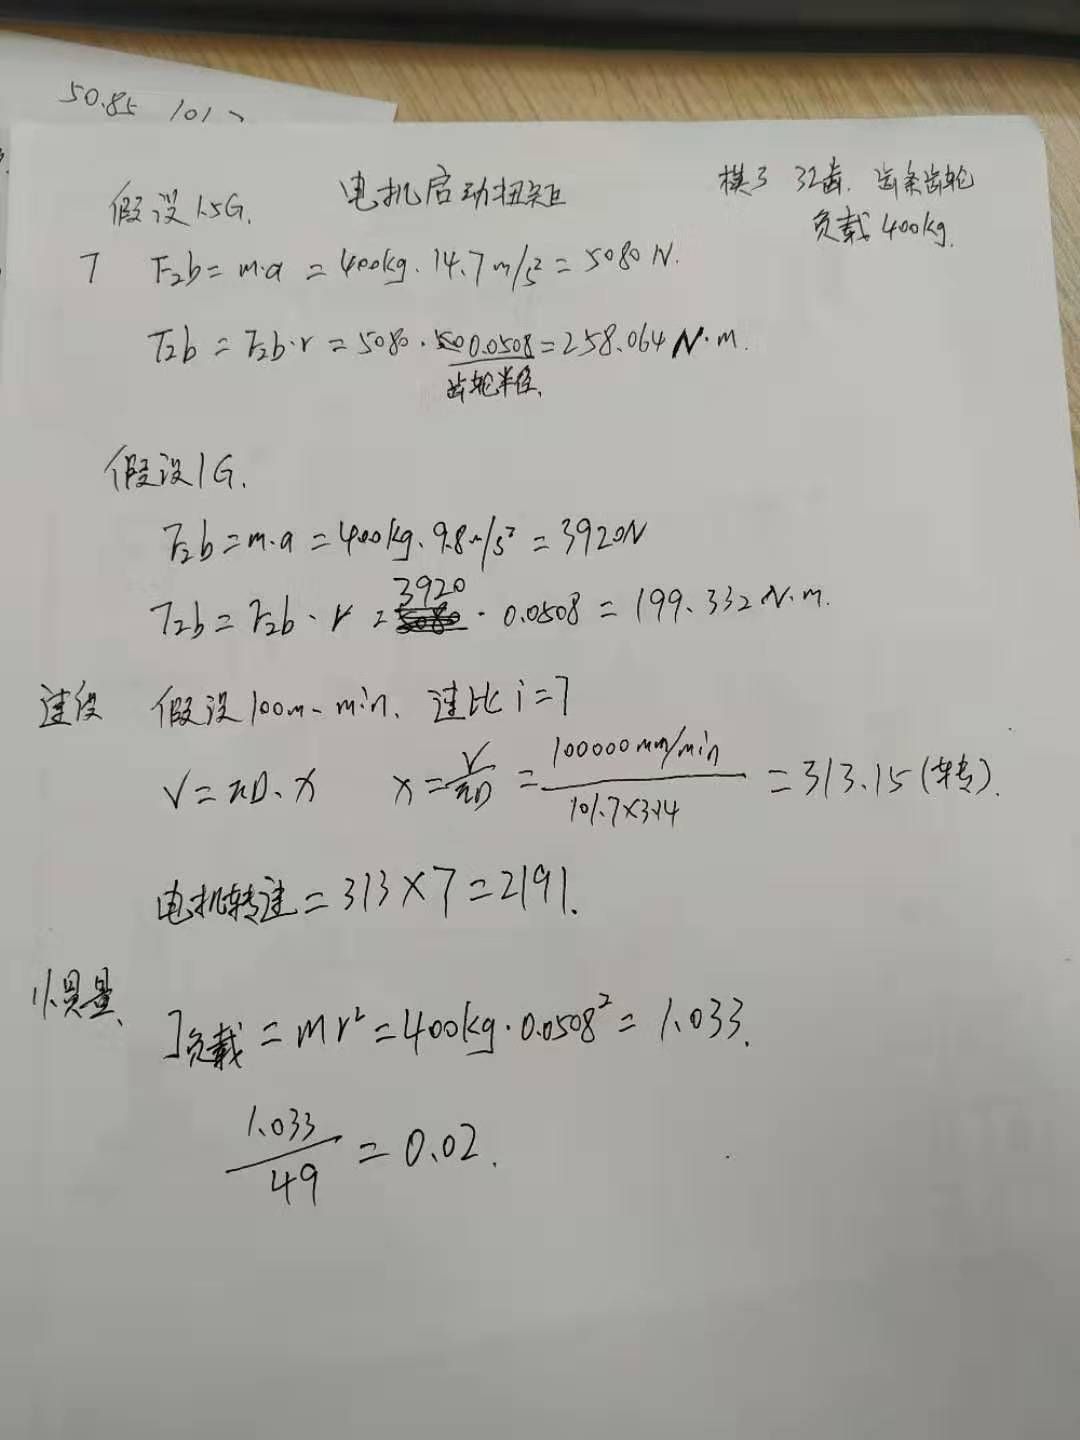 50.85 101.7
电机启动扭矩
模3 32齿. 齿条齿轮
负载400kg.
假设1.5G.
T F2b = m·a = 400kg · 14.7m/s² = 5080N.
T2b = F2b·r = 5080 · 0.0508 = 258.064 N·m.
齿轮半径.
假设1G.
F2b = m·a = 400kg · 9.8m/s² = 3920N
T2b = F2b · r = 3920 · 0.0508 = 199.332 N·m.
速度 假设100m-min. 速比 i=7
V = πD·x x = V/πD = 100000mm/min / 101.7×3.14 = 313.15(转).
电机转速 = 313×7 = 2191.
惯量、 J负载 = mr² = 400kg · 0.0508² = 1.033.
1.033/49 = 0.02.